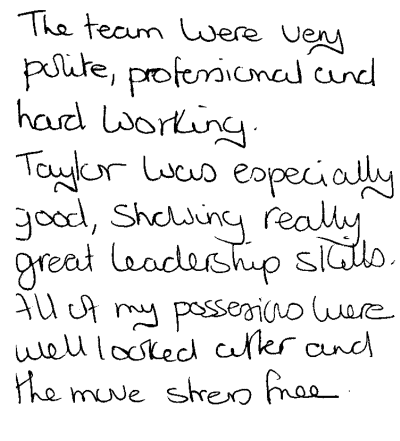 The team were very
polite, professional and
hard working.
Taylor was especially
good, showing really
great leadership skills.
All of my possessions were
well looked after and
the move stress free.